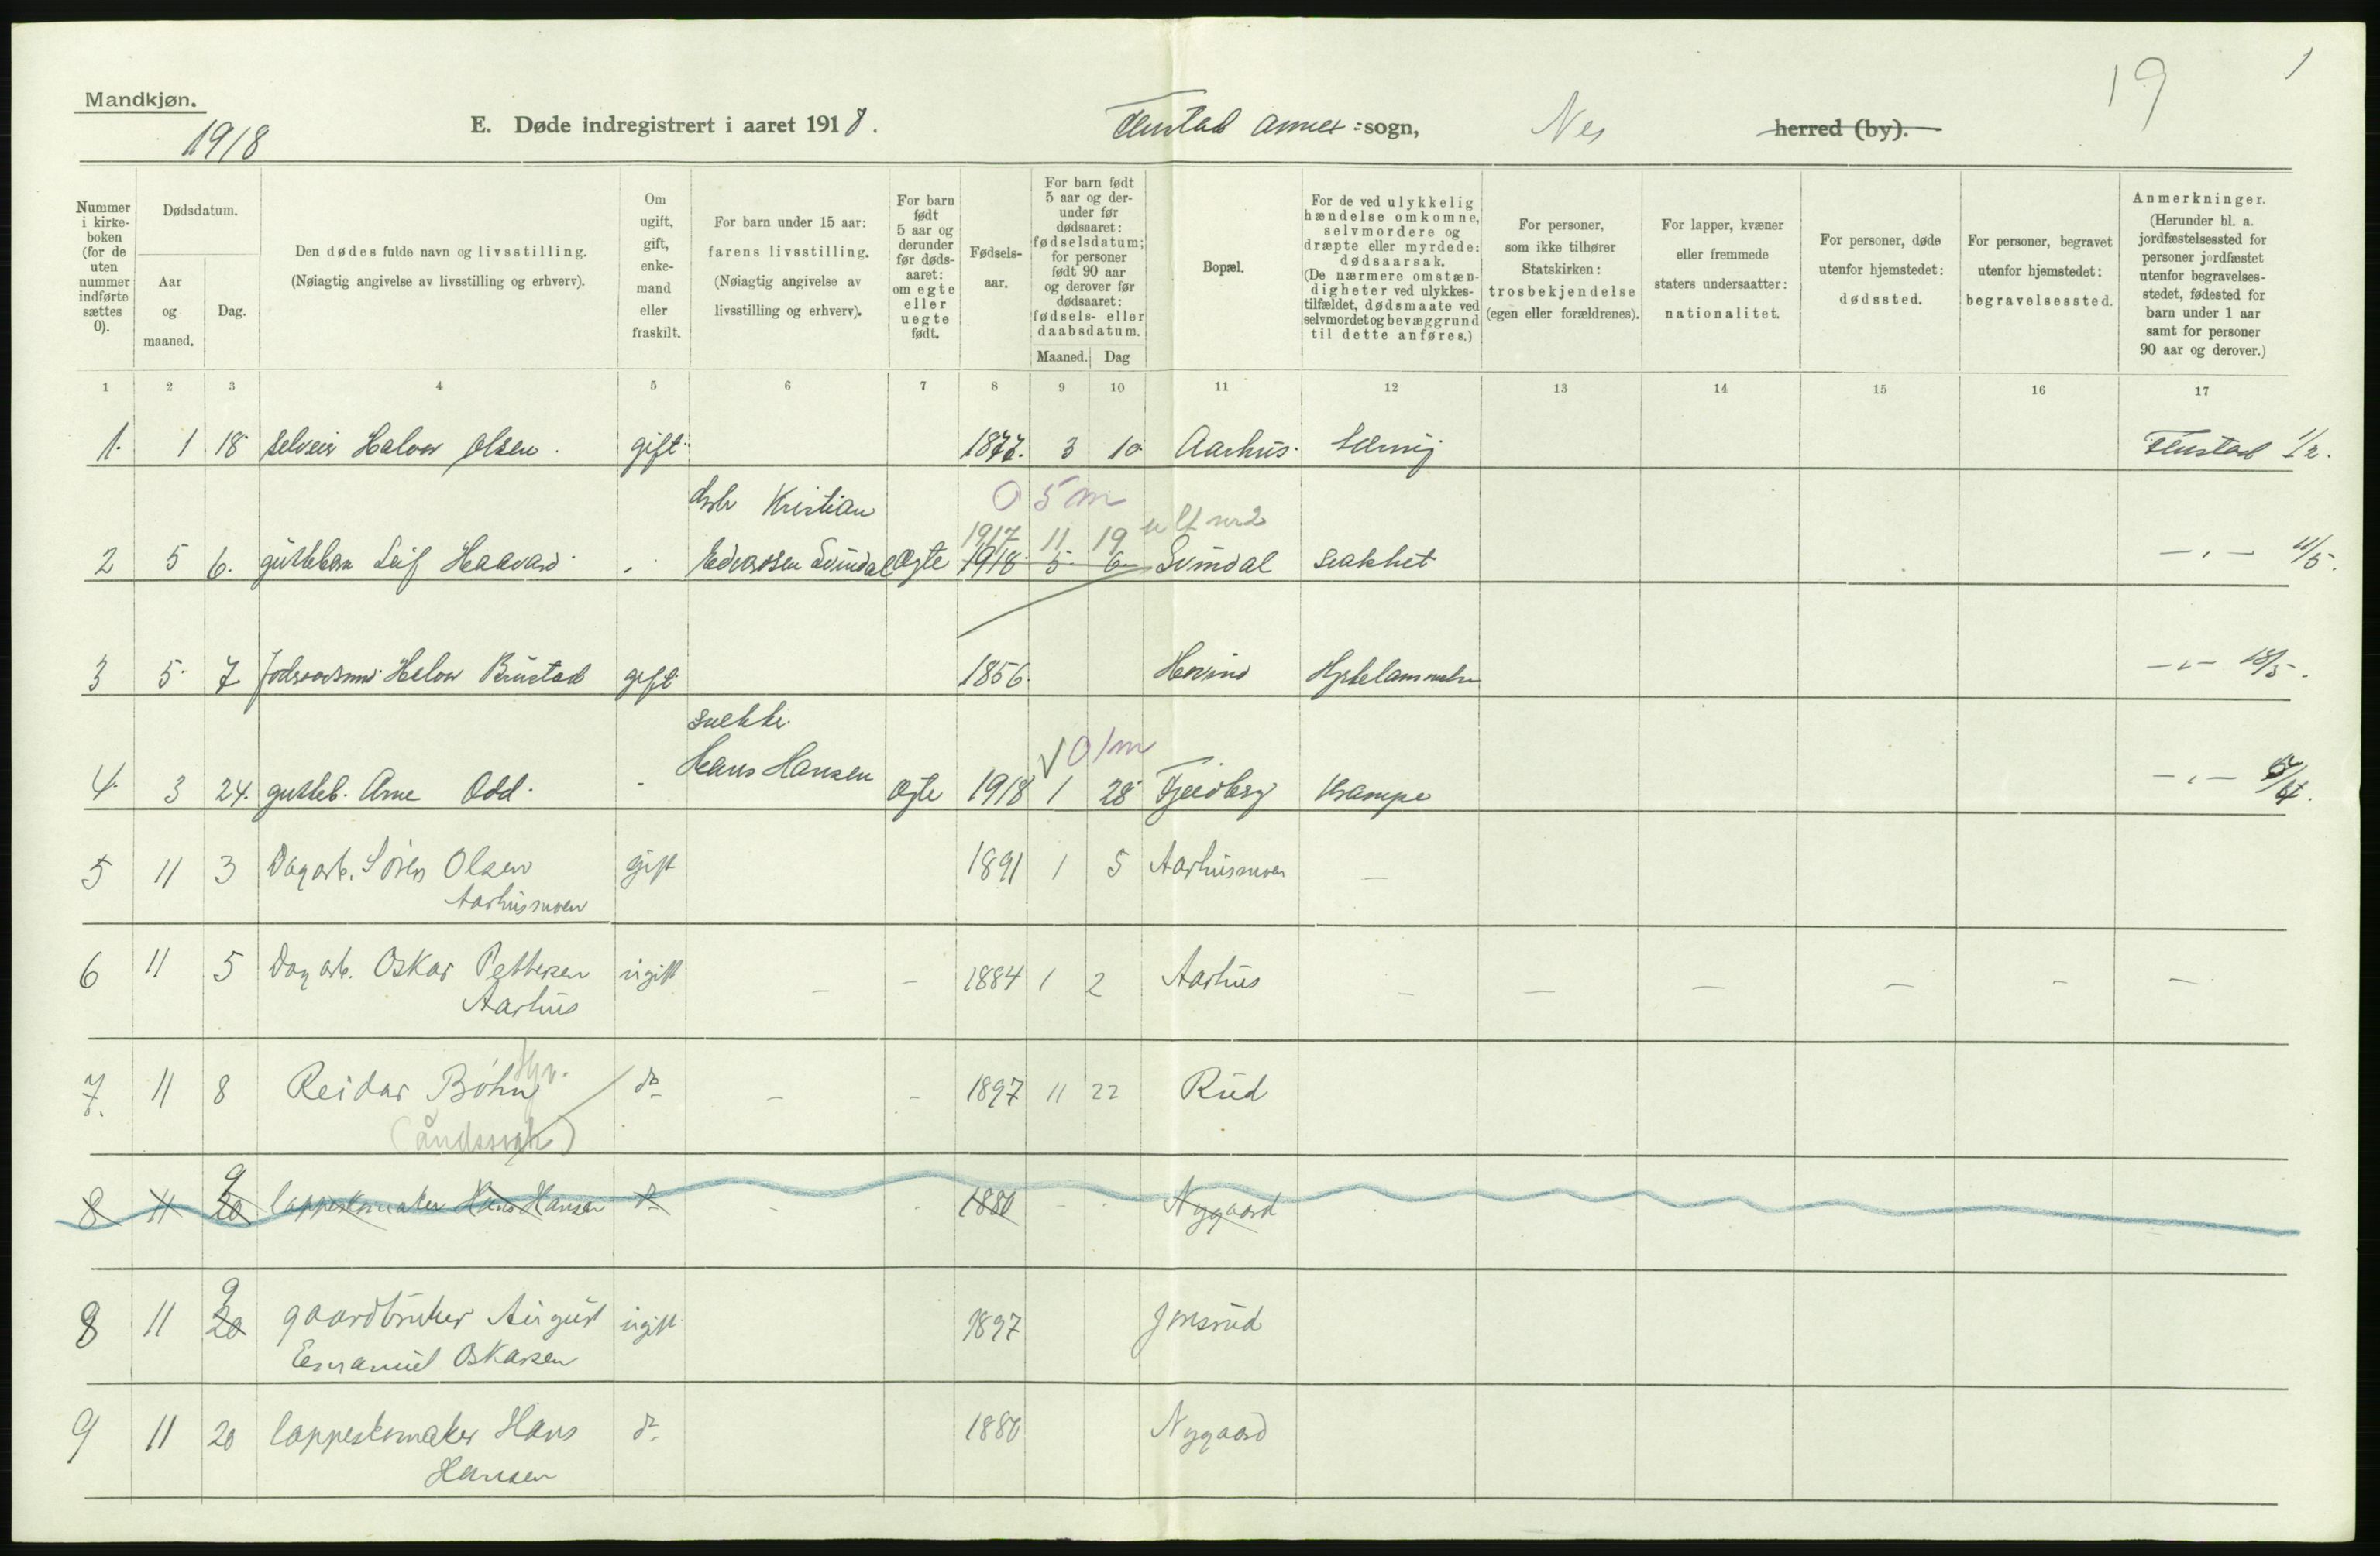 19
1
Mandkjøn.
1918
E. Døde indregistrert i aaret 1918.
annex =sogn,
Nes
herred (by).
Nummer i kirkeboken (for de uten nummer indførte sættes 0).
Dødsdatum.
Aar og maaned.
Dag.
Den dødes fulde navn og livsstilling.
(Nøiagtig angivelse av livsstilling og erhverv).
Om ugift, gift, enkemand eller fraskilt.
For barn under 15 aar: farens livsstilling.
(Nøiagtig angivelse av livsstilling og erhverv).
For barn født 5 aar og derunder før dødsaaret: om egte eller uegte født.
Fødselsaar.
For barn født 5 aar og derunder før dødsaaret: fødselsdatum; for personer født 90 aar og derover før dødsaaret: fødsels- eller daabsdatum.
Maaned.
Dag
Bopæl.
For de ved ulykkelig hændelse omkomne, selvmordere og dræpte eller myrdede: dødsaarsak.
(De nærmere omstændigheter ved ulykkestilfældet, dødsmaate ved selvmordet og bevæggrund til dette anføres.)
For personer, som ikke tilhører Statskirken: trosbekjendelse (egen eller forældrenes).
For lapper, kvæner eller fremmede staters undersaatter: nationalitet.
For personer, døde utenfor hjemstedet: dødssted.
For personer, begravet utenfor hjemstedet: begravelsessted.
Anmerkninger.
(Herunder bl. a. jordfæstelsessted for personer jordfæstet utenfor begravelsesstedet, fødested for barn under 1 aar samt for personer 90 aar og derover.)
1 2 3 4 5 6 7 8 9 10 11 12 13 14 15 16 17
1. 1 18 selveier Halvor Olsen. gift. 1877. 3 10 Aarhus. 1/2.
Kristian
0 5 m
1917 11 19
2 5 6. guttebarn Leif Haavard. Edvardsen Svindal ægte 1918. 5. 6. Svindal svakhet —,,— 11/5.
3 5. 7. Halvor Brustad gift 1856. —,,— 18/5.
√ 0 1 m
4. 3 24. gutteb. Arne Odd. - Hans Hansen ægte 1918 1 28 Krampe —,,—
5 11 3 Dagarb. Søren Olsen gift 1891 1 5 Aarhusmoen —
Aarhusmoen
6 11 5 Dagarb. Oskar Pettersen ugift — – 1884 1 2 Aarhus — — — — – —
Aarhus
7. 11 8 Reidar Bøhn do – – 1897 11 22 Rud
(åndssvak)
8 11 20 9 lappeskomaker Hans Hansen do - - 1880 - - Nygaard
8 11 20 9 gaardbruker August ugift 1897 Jonsrud
Emanuel Oskarsen
9 11 20 lappeskomaker Hans do 1880 Nygaard
Hansen